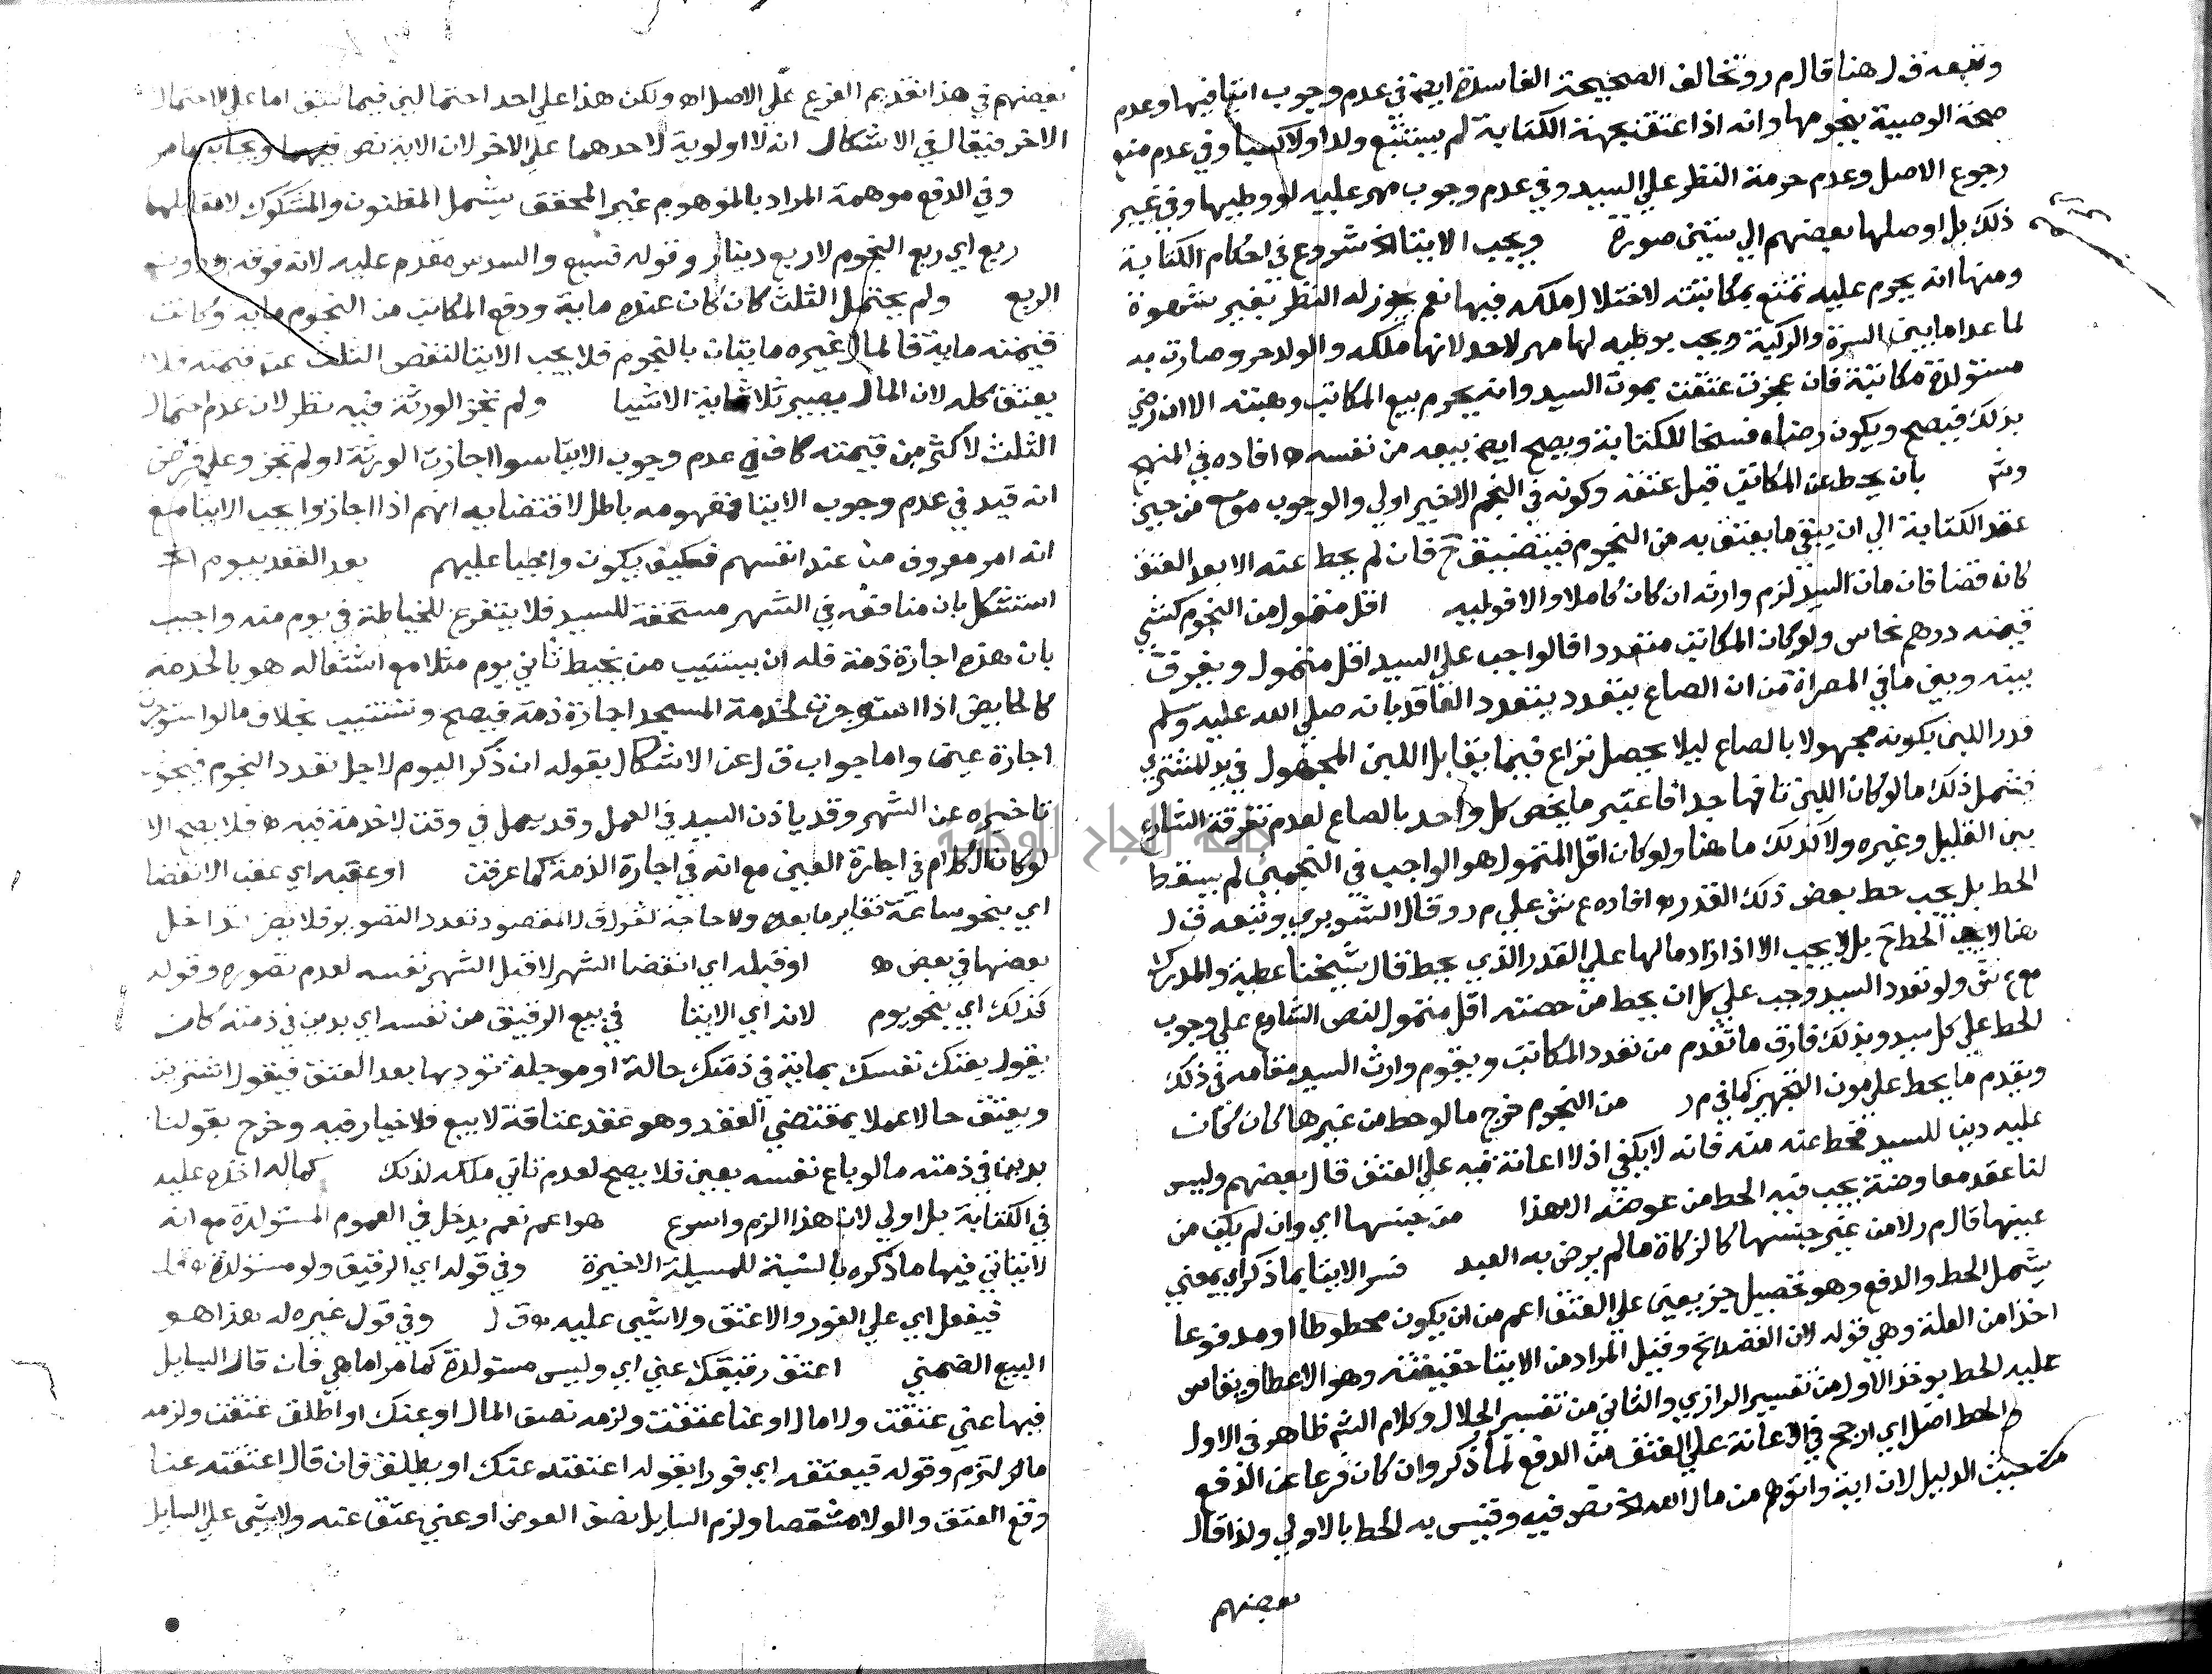 وتبعه ق ل هنا قال م ر وتخالف الصحيحة الفاسدة ايضا في عدم وجوب ايتا فيها وعدم
صحة الوصية بنجومها وانه اذا عتق بجهة الكتابة لم يستتبع ولدا ولا كسبا وفي عدم منع
رجوع الاصل وعدم حرمة النظر علي السيد وفي عدم وجوب مهر عليه لو وطيها وفي غير
ذلك بل اوصلها بعضهم الي ستين صورة ويجب الايتا الخ شروع في احكام الكتابة
ومنها انه يحرم عليه تمتع بمكاتبته لاختلال ملكه فيها نعم يجوز له النظر بغير شهوة
لما عدا ما بين السرة والركبة ويجب بوطيه لها مهر لا حد لانها ملكه والولد حر وصارت به
مستولدة مكاتبة فان عجزت عتقت بموت السيد وانه يحرم بيع المكاتب وهبته الا ان رضي
بذلك فيصح ويكون رضاه فسخا للكتابة ويصح ايضا بيعه من نفسه اه افاده في المنهج
بان يحط عن المكاتب قبل عتقه وكونه في النجم الاخير اولي والوجوب موسع من حين
عقد الكتابة الي ان يبقي ما يعتق به من النجوم فيتضيق ح فان لم يحط عنه الا بعد العتق
كان قضا فان مات السيد لزم وارثه ان كان كاملا والا فوليه اقل متمول من النجوم كشي
قيمته درهم نحاس ولو كان المكاتب متعددا فالواجب علي السيد اقل متمول ويفرق
بينه وبين ما في المصراة من ان الصاع يتعدد بتعدد العاقد بانه صلي الله عليه وسلم
قدر اللبن بكونه مجهولا بالصاع ليلا يحصل نزاع فيما يقابل اللبن المحصول في يد المشتري
فشمل ذلك ما لو كان اللبن تافها جدا فاعتبر ما يخص كل واحد بالصاع لعدم تفرقة الشارع
بين القليل وغيره ولا كذلك ما هنا ولو كان اقل المتمول هو الواجب في النجمين لم يسقط
الحط بل يجب حط بعض ذلك القدر اه افاده ع ش علي م ر وقال الشوبري وتبعه ق ل
هنا لا يجب الحط ح بل لا يجب الا اذا زاد مالها علي القدر الذي يحط قال شيخنا عطية والمدرك
مع ع ش ولو تعدد السيد وجب علي كل ان يحط من حصته اقل متمول لنص الشارع علي وجوب
الحط علي كل سيد وبذلك فارق ما تقدم من تعدد المكاتب ويقوم وارث السيد مقامه في ذلك
ويقدم ما يحط علي مون التجهيز كما في م ر من النجوم خرج ما لو حط من غيرها كان كان
عليه دين للسيد فحط عنه منه فانه لا يكفي اذ لا اعانة فيه علي العتق قال بعضهم وليس
لنا عقد معاوضة يجب فيه الحط من عوضه الا هذا من جنسها اي وان لم يكن من
عينها قال م ر لا من غير جنسها كالزكاة ما لم يرض به العبد فسر الايتا بما ذكر اي بمعني
يشمل الحط والدفع وهو تحصيل جز يعين علي العتق اعم من ان يكون محطوطا او مدفوعا
اخذا من العلة وهي قوله لان القصد الخ وقيل المراد من الايتا حقيقته وهو الاعطا ويقاس
عليه الحط يوخذ الاول من تفسير الرازي والثاني من تفسير الجلال وكلام الشم ظاهر في الاول
والحط اصل اي ارجح في الاعانة علي العتق من الدفع لما ذكر وان كان فرعا عن الدفع
من حيث الدليل لان اية واتوهم من مال الله الخ نص فيه وقيس به الحط بالاولي ولذا قال
بعضهم
بعضهم في هذا تقديم الفرع علي الاصل اه ولكن هذا علي احد احتمالين فيما سبق اما علي الاحتمال
الاخر فيقال في الاشكال انه لا اولوية لاحدهما علي الاخر لان الاية نص فيهما ويجاب بما مر
وفي الدفع موهمة المراد بالموهوم غير المحقق يشمل المظنون والمشكوك لا مقابلهما
ربع اي ربع النجوم لا ربع دينار وقوله فسبع والسدس مقدم عليه لانه فوقه ودون
الربع ولم يحتمل الثلث كان كان عنده ماية ودفع المكاتب من النجوم ماية وكانت
قيمته ماية فالمال غيره مايتان بالنجوم فلا يجب الايتا لنقص الثلث عن قيمته فلا
يعتق كله لان المال يصير ثلاثماية الا شيا ولم تجز الورثة فيه نظر لان عدم احتمال
الثلث لاكثر من قيمته كاف في عدم وجوب الايتا سوا اجازت الورثة او لم تجز وعلي فرض
انه قيد في عدم وجوب الايتا فمفهومه باطل لاقتضايه انهم اذا اجازوا يجب الايتا مع
انه امر معروف من عند انفسهم فكيف يكون واجبا عليهم بعد العقد بيوم الخ
استشكل بان منافعه في الشهر مستحقة للسيد فلا يتفرع للخياطة في يوم منه واجيب
بان هذه اجارة ذمة فله ان يستنيب من يخيط ثاني يوم مثلا مع اشتغاله هو بالخدمة
كالحايض اذا استوجرت لخدمة المسجد اجارة ذمة فيصح وتستنيب بخلاف ما لو استوجرت
اجارة عين اه واما جواب ق ل عن الاشكال بقوله ان ذكر اليوم لاجل تعدد النجوم فيجوز
تاخيره عن الشهر وقد ياذن السيد في العمل وقد يعمل في وقت لا خدمة فيه اه فلا يصح الا
لو كان الكلام في اجارة العين مع انه في اجارة الذمة كما عرفت او عقبه اي عقب الانقضا
اي بنحو ساعة فغاير ما بعده ولا حاجة لقول ق ل المقصود تعدد التصوير فلا يضر تداخل
بعضها في بعض اه او قبله اي انقضا الشهر لا قبل الشهر نفسه لعدم تصوره وقوله
كذلك اي بنحو يوم لانه اي الايتا في بيع الرقيق من نفسه اي بدين في ذمته كان
يقول بعتك نفسك بماية في ذمتك حالة او موجلة تؤديها بعد العتق فيقول اشتريت
ويعتق حالا عملا بمقتضي العقد وهو عقد عتاقة لا بيع فلا خيار فيه وخرج بقولنا
بدين في ذمته ما لو باع نفسه بعين فلا يصح لعدم تاتي ملكه لذلك كماله اخذه عليه
في الكتابة بل اولي لان هذا الزم واسرع هو اعم نعم يدخل في العموم المستولدة مع انه
لا يتاتي فيها ما ذكره بالنسبة للمسيلة الاخيرة وفي قوله اي الرقيق ولو مستولدة اه ق ل
فيفعل اي علي الفور والا عتق ولا شي عليه اه ق ل وفي قول غيره له هذا هو
البيع الضمني اعتق رقيقك عني اي وليس مستولدة كما مر اما هي فان قال السايل
فيها عني عتقت ولا مال او عنا عتقت ولزمه نصف المال او عنك او اطلق عتقت ولزمه
ما التزم وقوله فيعتقه اي فورا بقوله اعتقته عنك او يطلق فان قال اعتقته عنا
وقع العتق والولا مشقصا ولزم السايل نصف العوض او عني عتق عنه ولا شي علي السايل